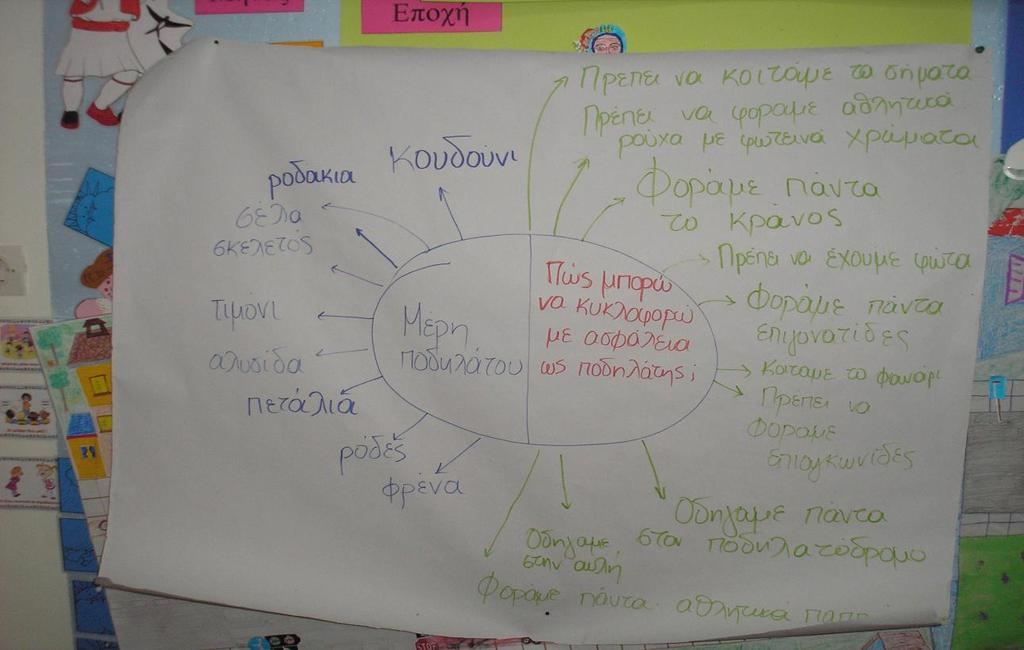 Εποχή
Κουδούνι
ροδακια
σέλα
σκελετός
τιμόνι
αλυσίδα
πετάλια
ρόδες
φρένα
Μέρη
ποδηλάτου
Πώς μπορώ
να κυκλοφορώ
με ασφάλεια
ως ποδηλάτης;
Πρέπει να κοιτάμε τα σήματα
Πρέπει να φοράμε αθλητικά
ρούχα με φωτεινά χρώματα
Φοράμε πάντα
το κράνος
Πρέπει να έχουμε φώτα
Φοράμε πάντα
επιγονατίδες
Κοιταμε το φανάρι
Πρέπει να
φοραμε
επιαγκωνίδες
Οδηγαμε πάντα
στον ποδηλατόδρομο
Οδηγαμε
στην αυλή
Φοράμε πάντα αθλητικά